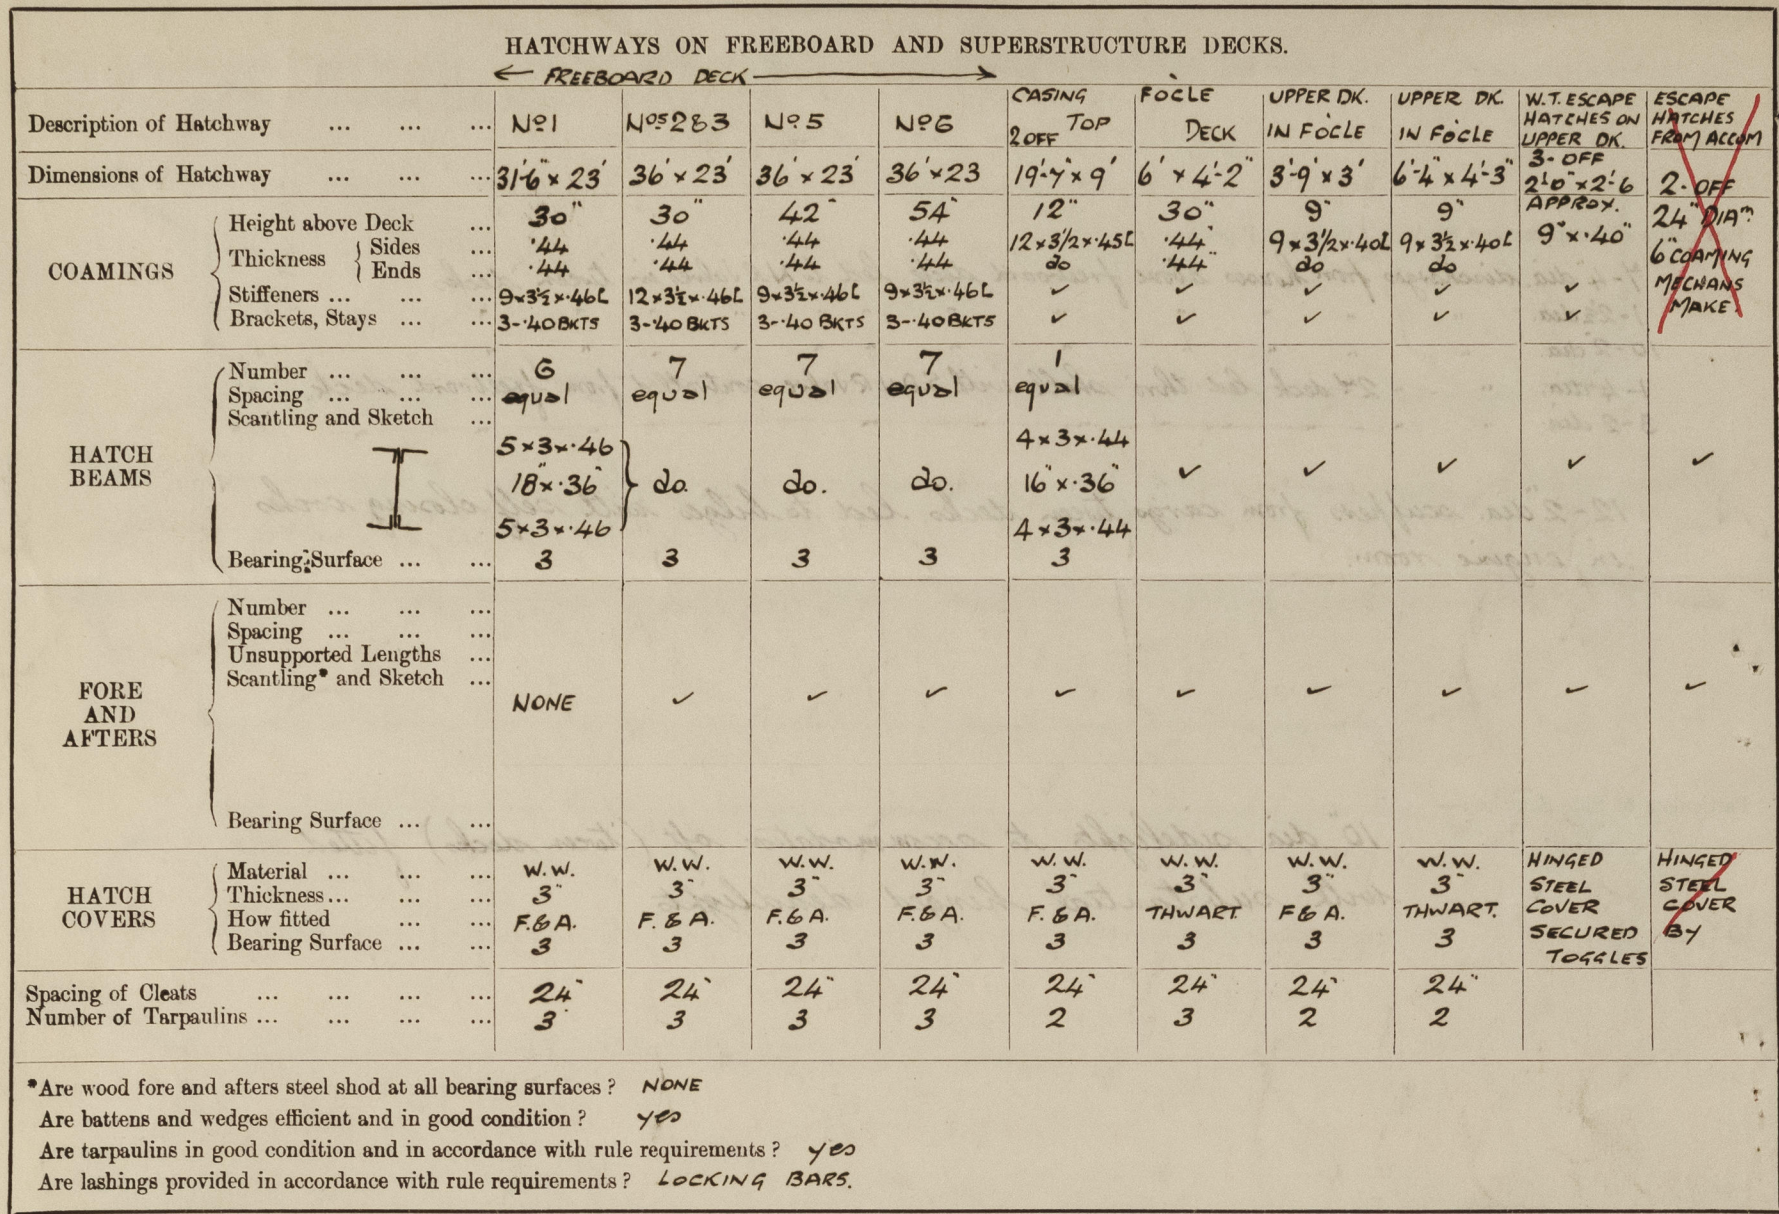 HATCHWAYS ON FREEBOARD AND SUPERSTRUCTURE DECKS.
← FREEBOARD DECK →
Description of Hatchway ... ... ... No1 Nos 2&3 No5 No6 CASING TOP 2 OFF FOCLE DECK UPPER DK. IN FOCLE UPPER DK. IN FOCLE W.T. ESCAPE HATCHES ON UPPER DK. ESCAPE HATCHES FROM ACCOM
Dimensions of Hatchway ... ... ... 31'-6" × 23' 36' × 23' 36' × 23' 36' × 23 19'-7" × 9' 6' × 4'-2" 3'-9" × 3' 6'-4" × 4'-3" 3-OFF 2'0" × 2'-6 APPROX. 2-OFF
COAMINGS
Height above Deck ... 30" 30" 42" 54" 12" 30" 9" 9" 9" × .40" 24" DIAM.
Thickness { Sides ... .44 .44 .44 .44 12 × 3 1/2 × .45L .44" 9 × 3 1/2 × .40L 9 × 3½ × .40L 6" COAMING
Ends ... .44 .44 .44 .44 do .44" do do
Stiffeners ... ... ... 9 × 3½ × .46L 12 × 3½ × .46L 9 × 3½ × .46L 9 × 3½ × .46L ✓ ✓ ✓ ✓ ✓ MECHANS
Brackets, Stays ... ... 3-.40 BKTS 3-.40 BKTS 3-.40 BKTS 3-.40 BKTS ✓ ✓ ✓ ✓ ✓ MAKE.
HATCH BEAMS
Number ... ... ... 6 7 7 7 1
Spacing ... ... ... equal equal equal equal equal
Scantling and Sketch ...
5 × 3 × .46 4 × 3 × .44
18" × .36" } do. do. do. 16" × .36" ✓ ✓ ✓ ✓ ✓
5 × 3 × .46 4 × 3 × .44
Bearing Surface ... ... 3 3 3 3 3
FORE AND AFTERS
Number ... ... ...
Spacing ... ... ...
Unsupported Lengths ...
Scantling* and Sketch ...
NONE ✓ ✓ ✓ ✓ ✓ ✓ ✓ ✓ ✓
Bearing Surface ... ...
HATCH COVERS
Material ... ... ... W.W. W.W. W.W. W.W. W.W. W.W. W.W. W.W. HINGED HINGED
Thickness ... ... ... 3" 3" 3" 3" 3" 3" 3" 3" STEEL STEEL
How fitted ... ... F. & A. F. & A. F. & A. F. & A. F. & A. THWART. F & A. THWART. COVER COVER
Bearing Surface ... ... 3 3 3 3 3 3 3 3 SECURED BY
TOGGLES
Spacing of Cleats ... ... ... ... 24" 24" 24" 24" 24" 24" 24" 24"
Number of Tarpaulins ... ... ... ... 3 3 3 3 2 3 2 2
*Are wood fore and afters steel shod at all bearing surfaces ? NONE
Are battens and wedges efficient and in good condition ? yes
Are tarpaulins in good condition and in accordance with rule requirements ? yes
Are lashings provided in accordance with rule requirements ? LOCKING BARS.